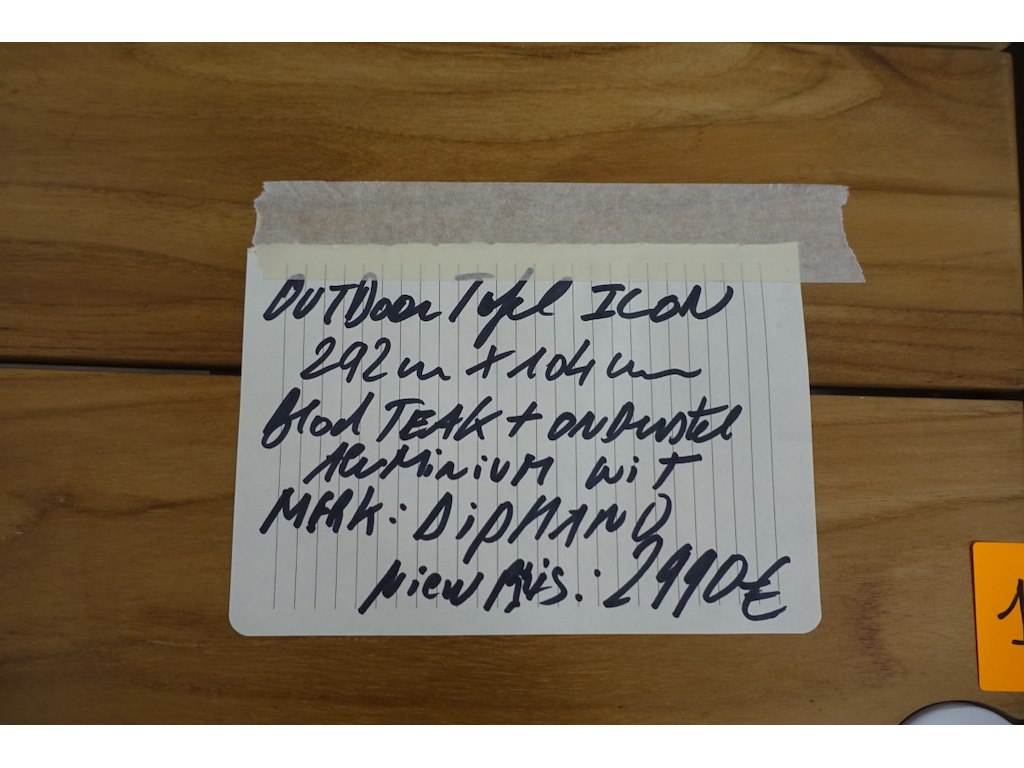 OUTDoor Tafel ICON
292cm + 104cm
Blad TEAK + onDerstel
AluMiniUM wiT
MERK: DipHANO
Niew PRijs: 2990€
1